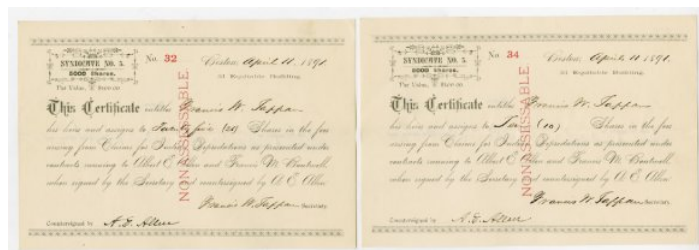 SYNDICATE NO. 5.
5000 Shares.
Par Value,
No. 32
Boston, April 11 1891.
51 Equitable Building.
This Certificate entitles Francis W. Tappan
his heirs and assigns to Twenty five (25) Shares in the fees
arising from Claims for Indian Depredations as presented under
contracts running to Albert E. Allen and Francis M.
when signed by the Secretary and countersigned by A. E. Allen
NON ASSESSABLE
Francis W. Tappan Secretary.
Countersigned by A. E. Allen
SYNDICATE NO. 5.
5000 Shares.
Par Value,
No. 34
Boston, April 11 1891.
51 Equitable Building.
This Certificate entitles Francis W. Tappan
his heirs and assigns to Ten (10) Shares in the fees
arising from Claims for Indian Depredations as presented under
contracts running to Albert E. Allen and Francis M.
when signed by the Secretary and countersigned by A. E. Allen
NON ASSESSABLE
Francis W. Tappan Secretary.
Countersigned by A. E. Allen